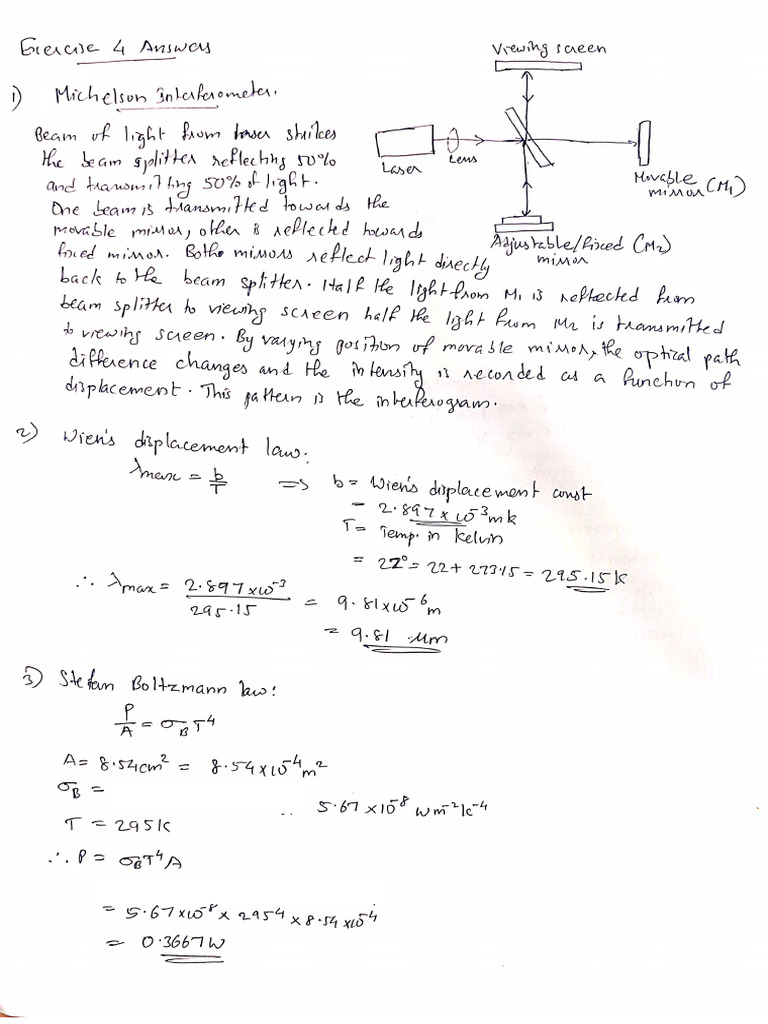 Exercise 4 Answers
1) Michelson Interferometer.
Viewing screen
Laser
Lens
Movable
mirror (M1)
Adjustable/fixed (M2)
mirror
Beam of light from laser strikes
the beam splitter reflecting 50%
and transmitting 50% of light.
One beam is transmitted towards the
movable mirror, other is reflected towards
fixed mirror. Bothe mirrors reflect light directly
back to the beam splitter. Half the light from M1 is reflected from
beam splitter to viewing screen half the light from M2 is transmitted
to viewing screen. By varying position of movable mirror, the optical path
difference changes and the intensity is recorded as a function of
displacement. This pattern is the interferogram.
2) Wien's displacement law:
λmax = b/T => b = Wien's displacement const
= 2.897 × 10⁻³ mk
T = Temp. in kelvin
= 22° = 22 + 273.15 = 295.15 K
∴ λmax = 2.897 × 10⁻³ / 295.15 = 9.81 × 10⁻⁶ m
= 9.81 μm
3) Stefan Boltzmann law:
P/A = σB T⁴
A = 8.54 cm² = 8.54 × 10⁻⁴ m²
σB = .. 5.67 × 10⁻⁸ W m⁻² k⁻⁴
T = 295 K
∴ P = σB T⁴ A
= 5.67 × 10⁻⁸ × 295⁴ × 8.54 × 10⁻⁴
= 0.3667 W